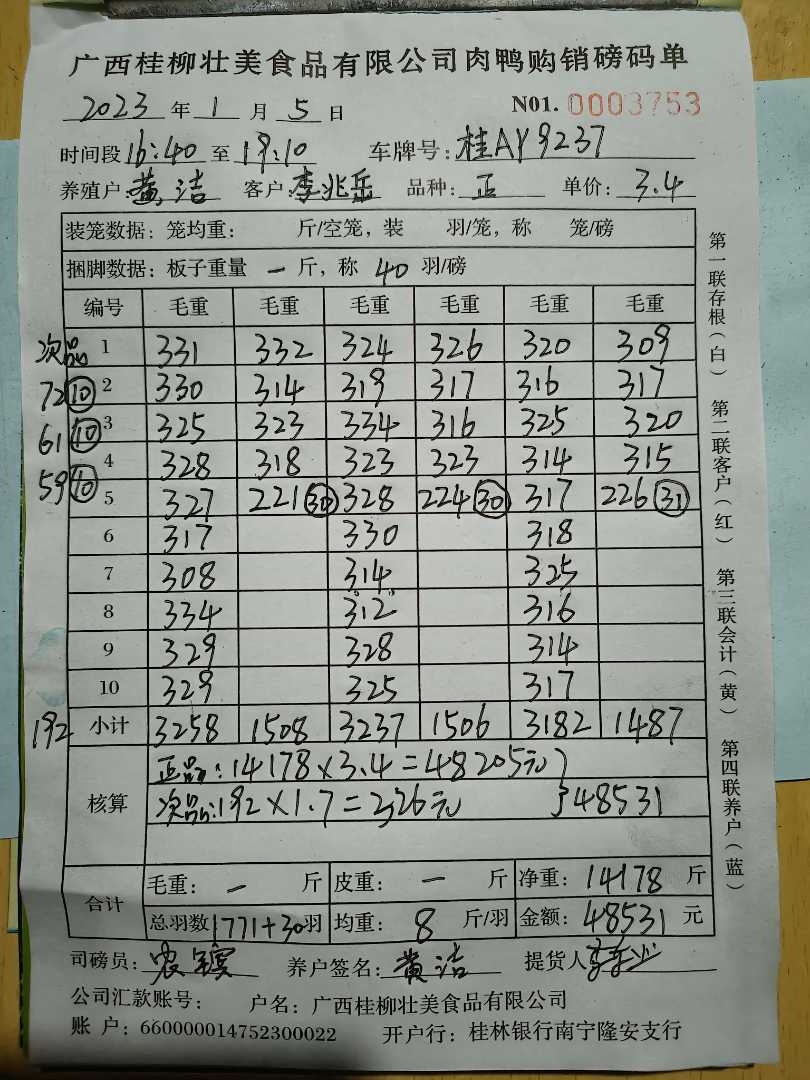 广西桂柳壮美食品有限公司肉鸭购销磅码单
2023 年 1 月 5 日 N01. 0003753
时间段 16:40 至 19:10 车牌号: 桂AY9237
养殖户: 黄洁 客户: 李兆岳 品种: 正 单价: 3.4
装笼数据: 笼均重: 斤/空笼, 装 羽/笼, 称 笼/磅
捆脚数据: 板子重量 一 斤, 称 40 羽/磅
编号 毛重 毛重 毛重 毛重 毛重 毛重
次品 1 331 332 324 326 320 309
72 ⑩ 2 330 314 319 317 316 317
61 ⑩ 3 325 323 334 316 325 320
59 ⑩ 4 328 318 323 323 314 315
5 327 221 ㉚ 328 224 ㉚ 317 226 ㉛
6 317 330 318
7 308 314 325
8 334 312 316
9 329 328 314
10 329 325 317
192 小计 3258 1508 3237 1506 3182 1487
核算
正品: 14178×3.4=48205元
次品: 192×1.7=326元 } 48531
合计
毛重: 一 斤 皮重: 一 斤 净重: 14178 斤
总羽数 1771+30 羽 均重: 8 斤/羽 金额: 48531 元
司磅员: 农 养户签名: 黄洁 提货人
公司汇款账号: 户名: 广西桂柳壮美食品有限公司
账 户: 660000014752300022 开户行: 桂林银行南宁隆安支行
第一联存根(白) 第二联客户(红) 第三联会计(黄) 第四联养户(蓝)